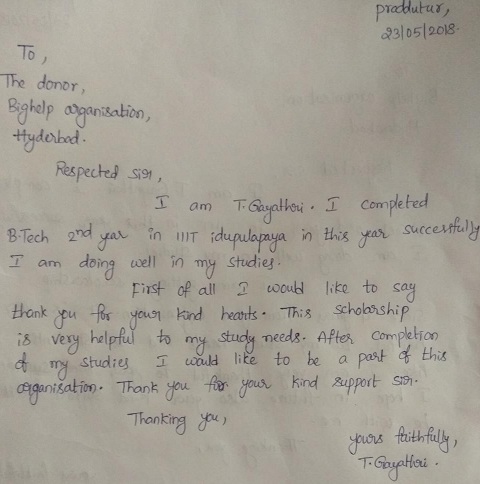 praddutur,
23/05/2018.
To,
The donor,
Bighelp organisation,
Hyderbad.
Respected sir,
I am T.Gayathri. I completed
B.Tech 2nd year in IIIT idupulapaya in this year successfully
I am doing well in my studies.
First of all I would like to say
thank you for your kind hearts. This scholarship
is very helpful to my study needs. After completion
of my studies I would like to be a part of this
organisation. Thank you for your kind support sir.
Thanking you,
yours faithfully,
T.Gayathri.